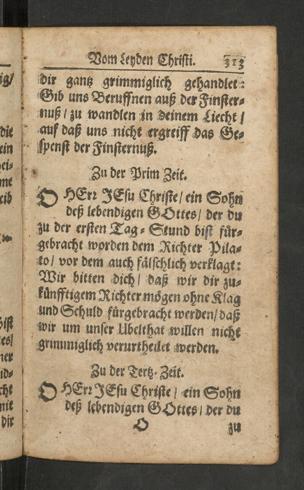 Vom Leyden Christi. 313
dir gantz grimmiglich gehandlet:
Gib uns Beruffnen auß der Finster-
nuß/ zu wandlen in deinem Liecht/
auf daß uns nicht ergreiff das Ge-
spenst der Finsternuß.
Zu der Prim Zeit.
O HErr JEsu Christe/ ein Sohn
deß lebendigen GOttes/ der du
zu der ersten Tag-Stund bist für-
gebracht worden dem Richter Pila-
to/ vor dem auch fälschlich verklagt:
Wir bitten dich/ daß wir dir zu-
künfftigem Richter mögen ohne Klag
und Schuld fürgebracht werden/ daß
wir um unser Ubelthat willen nicht
grimmiglich verurtheilet werden.
Zu der Tertz-Zeit.
O HErr JEsu Christe/ ein Sohn
deß lebendigen GOttes/ der du
O zu